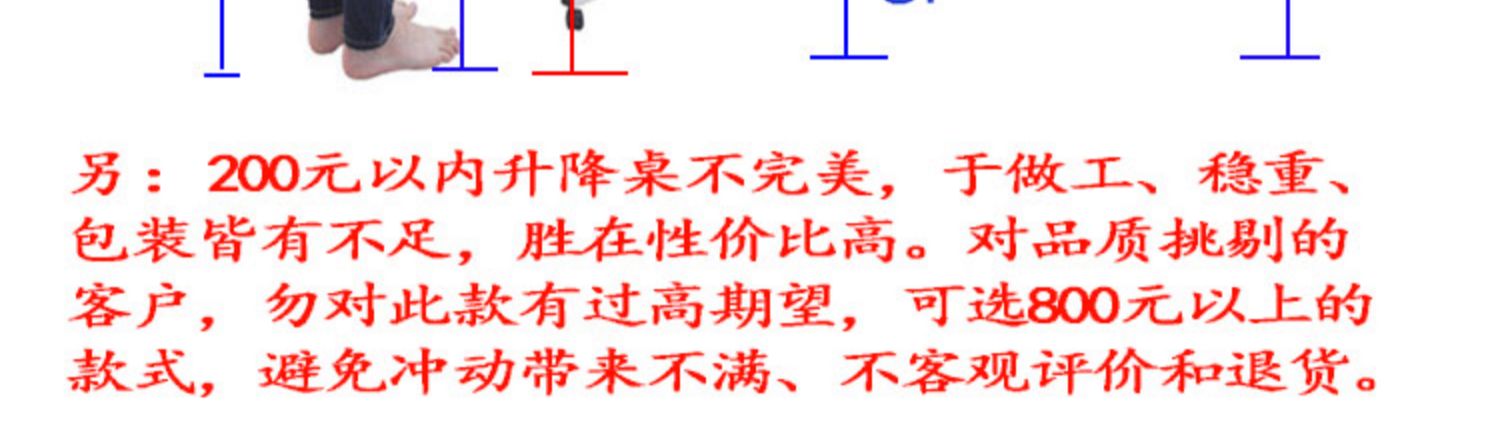 另：200元以内升降桌不完美，于做工、稳重、
包装皆有不足，胜在性价比高。对品质挑剔的
客户，勿对此款有过高期望，可选800元以上的
款式，避免冲动带来不满、不客观评价和退货。